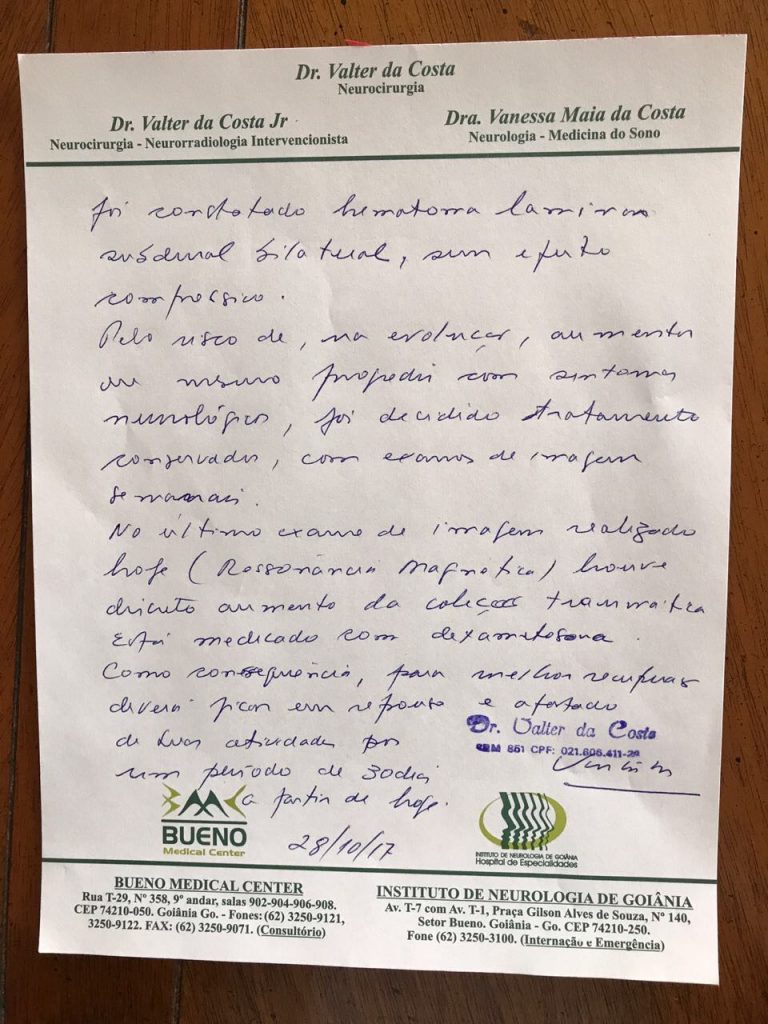 Dr. Valter da Costa
Neurocirurgia
Dr. Valter da Costa Jr
Neurocirurgia - Neurorradiologia Intervencionista
Dra. Vanessa Maia da Costa
Neurologia - Medicina do Sono
foi constatado hematoma laminar
subdural bilateral, sem efeito
compressivo.
Pelo risco de, na evolução, aumentar
ou mesmo progredir com sintomas
neurológicos, foi decidido tratamento
conservador, com exames de imagem
semanais.
No último exame de imagem realizado
hoje (Ressonância Magnética) houve
discreto aumento da coleção traumática
Está medicado com dexametasona.
Como consequência, para melhor recuperar
deverá ficar em repouso e afastado
de suas atividades por
um período de 30 dias
a partir de hoje.
28/10/17
Dr. Valter da Costa
CRM 851 CPF: 021.606.411-
BUENO
Medical Center
INSTITUTO DE NEUROLOGIA DE GOIÂNIA
Hospital de Especialidades
BUENO MEDICAL CENTER
Rua T-29, Nº 358, 9º andar, salas 902-904-906-908.
CEP 74210-050. Goiânia Go. - Fones: (62) 3250-9121,
3250-9122. FAX: (62) 3250-9071. (Consultório)
INSTITUTO DE NEUROLOGIA DE GOIÂNIA
Av. T-7 com Av. T-1, Praça Gilson Alves de Souza, Nº 140,
Setor Bueno. Goiânia - Go. CEP 74210-250.
Fone (62) 3250-3100. (Internação e Emergência)